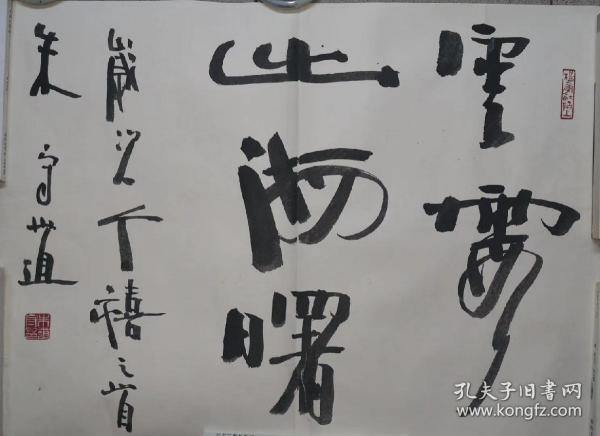 雲霞
出海曙
歲次千禧之首
朱守道
孔夫子旧书网
www.kongfz.com